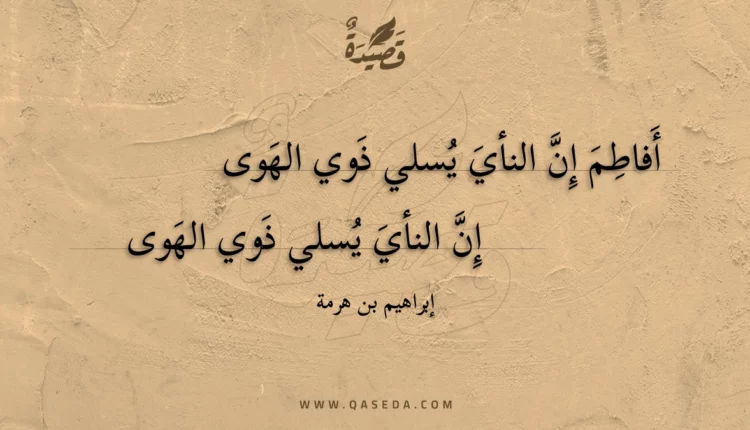 قَصِيدَةٌ
أَفاطِمَ إِنَّ النأيَ يُسلي ذَوي الهَوى
إِنَّ النأيَ يُسلي ذَوي الهَوى
إبراهيم بن هرمة
WWW.QASEDA.COM